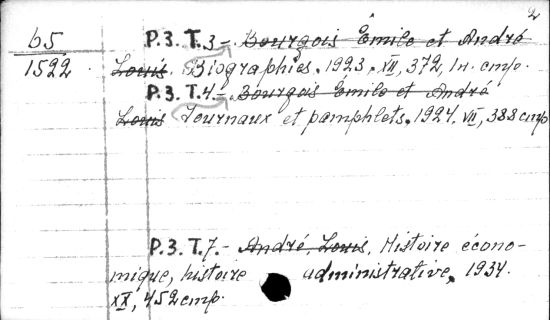 2
65
1522
P.3.T.3 – Bourgois Émile et André
Louis. Biographies. 1923. XII, 372, In. стр.
P.3.T.4. – Bourgois Émile et André
Louis Journaux et pamphlets. 1924. VII, 388 стр
P.3.T.7. – André, Louis, Histoire écono-
mique, histoire administrative, 1934.
XX, 452 стр.